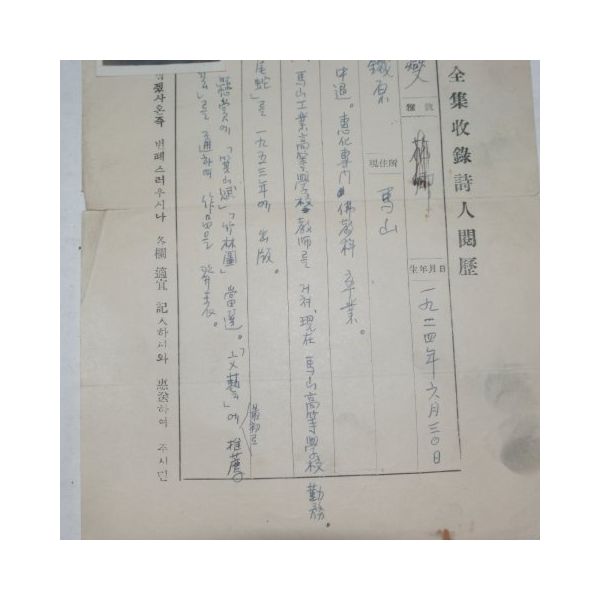 全集收錄詩人閱歷
燮 雅號 生年月日 一九二四年 六月 三○日
鐵原 現住所 馬山
中退。惠化專門 佛敎科 卒業。
馬山工業高等學校 敎師를 거쳐, 現在 馬山高等學校 勤務。
尾蛇」를 一九五三年에 出版。
懸賞에 「 」「竹林圖」當選。「文藝」에 最初로 推薦
를 通하여 作品을 發表。
하온즉 번폐스러우시나 各欄 適宜 記入하시와 惠送하여 주시면